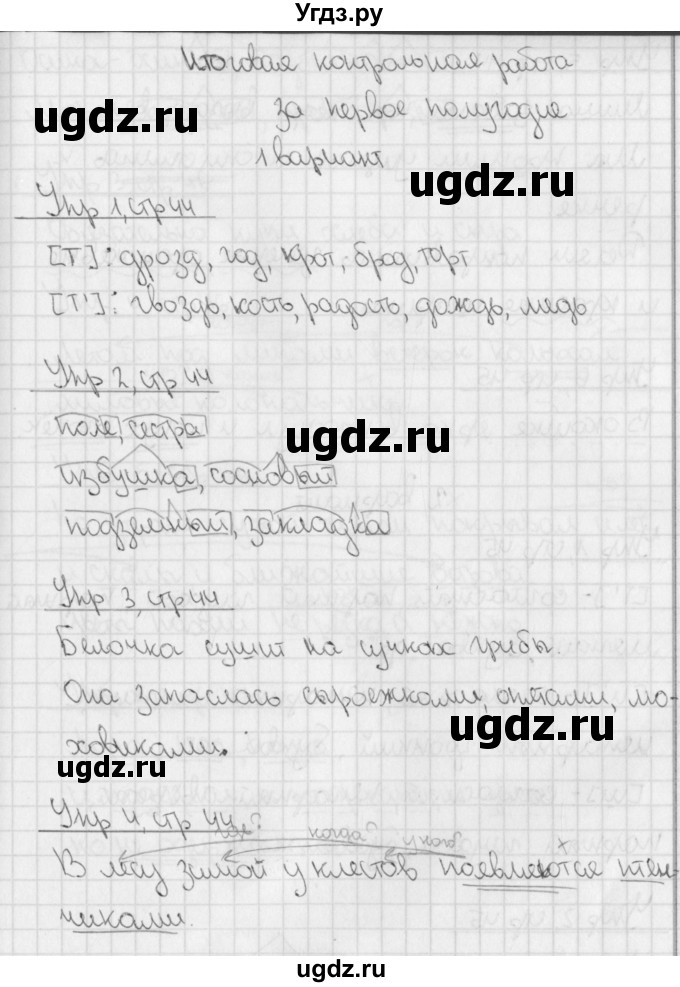 Угдз.ру
Итоговая контрольная работа
за первое полугодие
ugdz.ru
1 вариант
ugdz.ru
Упр 1, стр 44
[т]: дрозд, год, крот, брод, торт
[т']: гвоздь, кость, радость, дождь, медь
Упр 2, стр 44
поле, сестра
ugdz.ru
избушка, сосновый
подземный, закладка
Упр 3, стр 44
Белочка сушит на сучках грибы.
Она запаслась сыроежками, опятами, мо-
ugdz.ru
ховиками.
ugdz.ru
Упр 4, стр 44
где? когда? у кого?
В лесу зимой у клестов появляются птен-
чиками.
ugdz.ru